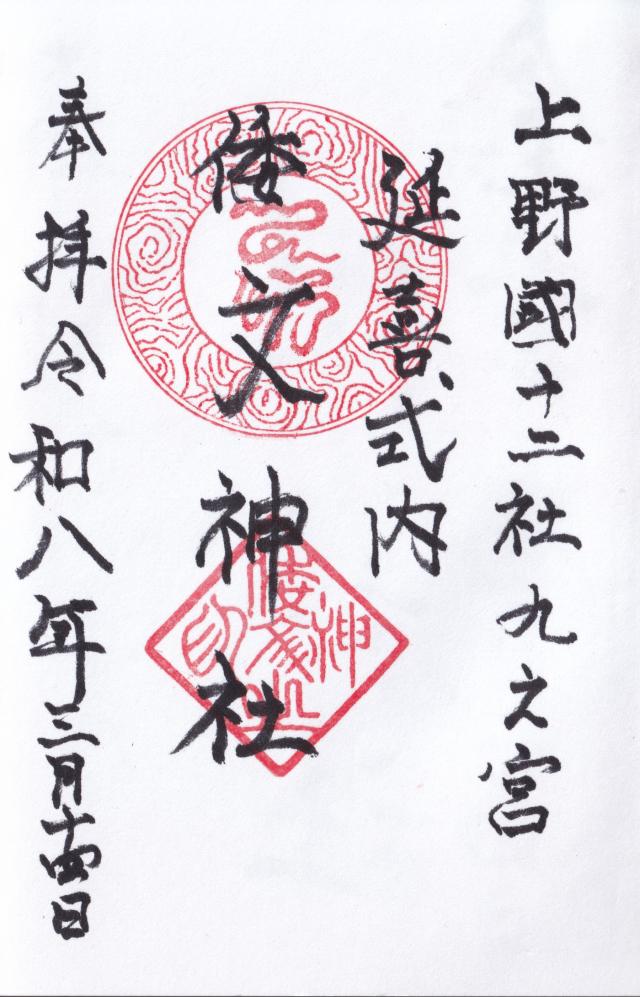 上野國十二社九之宮
延喜式内
倭文神社
奉拝令和八年三月十四日